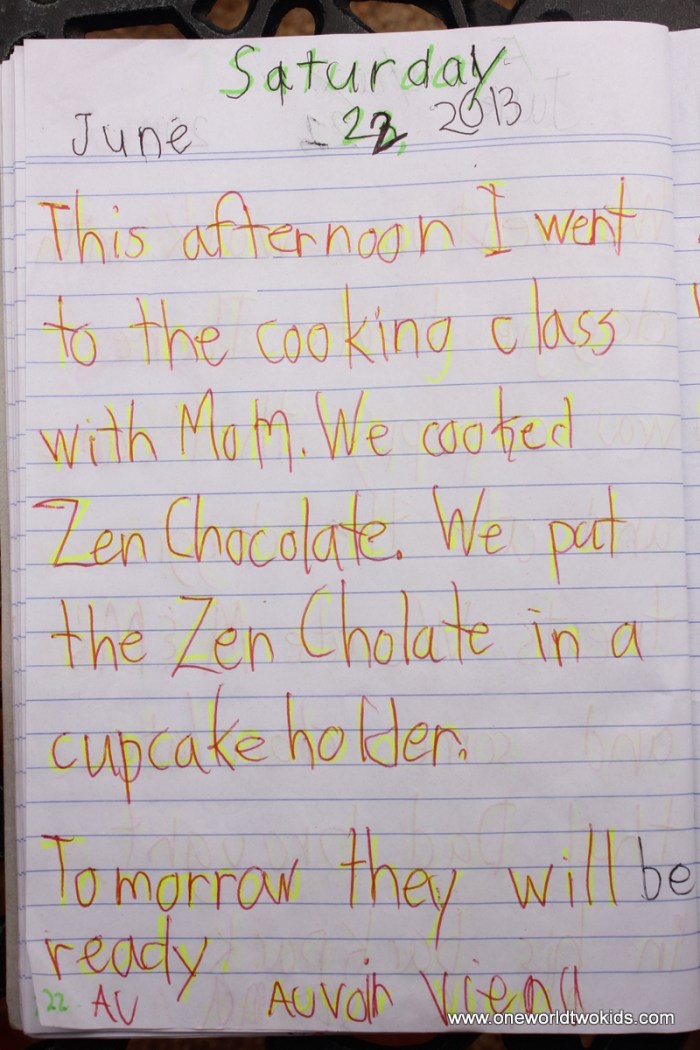 Saturday
June 22, 2013
This afternoon I went
to the cooking class
with Mom. We cooked
Zen Chocolate. We put
the Zen Cholate in a
cupcake holder.
Tomorrow they will be
ready.
22 AU Auvoir Vriend
www.oneworldtwokids.com